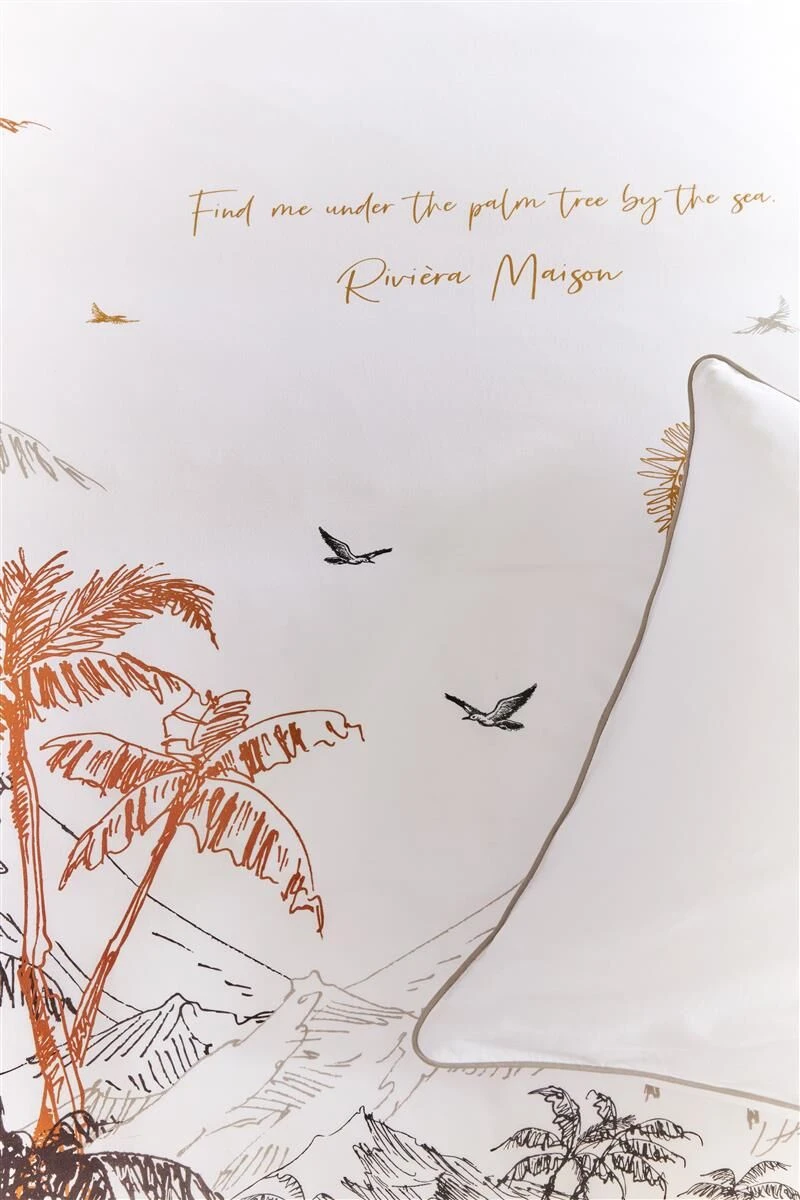 Find me under the palm tree by the sea.
Rivièra Maison